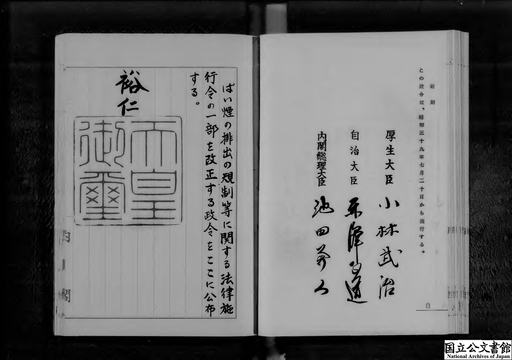 ばい煙の排出の規制等に関する法律施
行令の一部を改正する政令をここに公布
する。
裕仁
天皇
御璽
附則
この政令は、昭和三十九年七月二十日から施行する。
厚生大臣 小林武治
自治大臣
内閣総理大臣 池田勇人
国立公文書館
National Archives of Japan